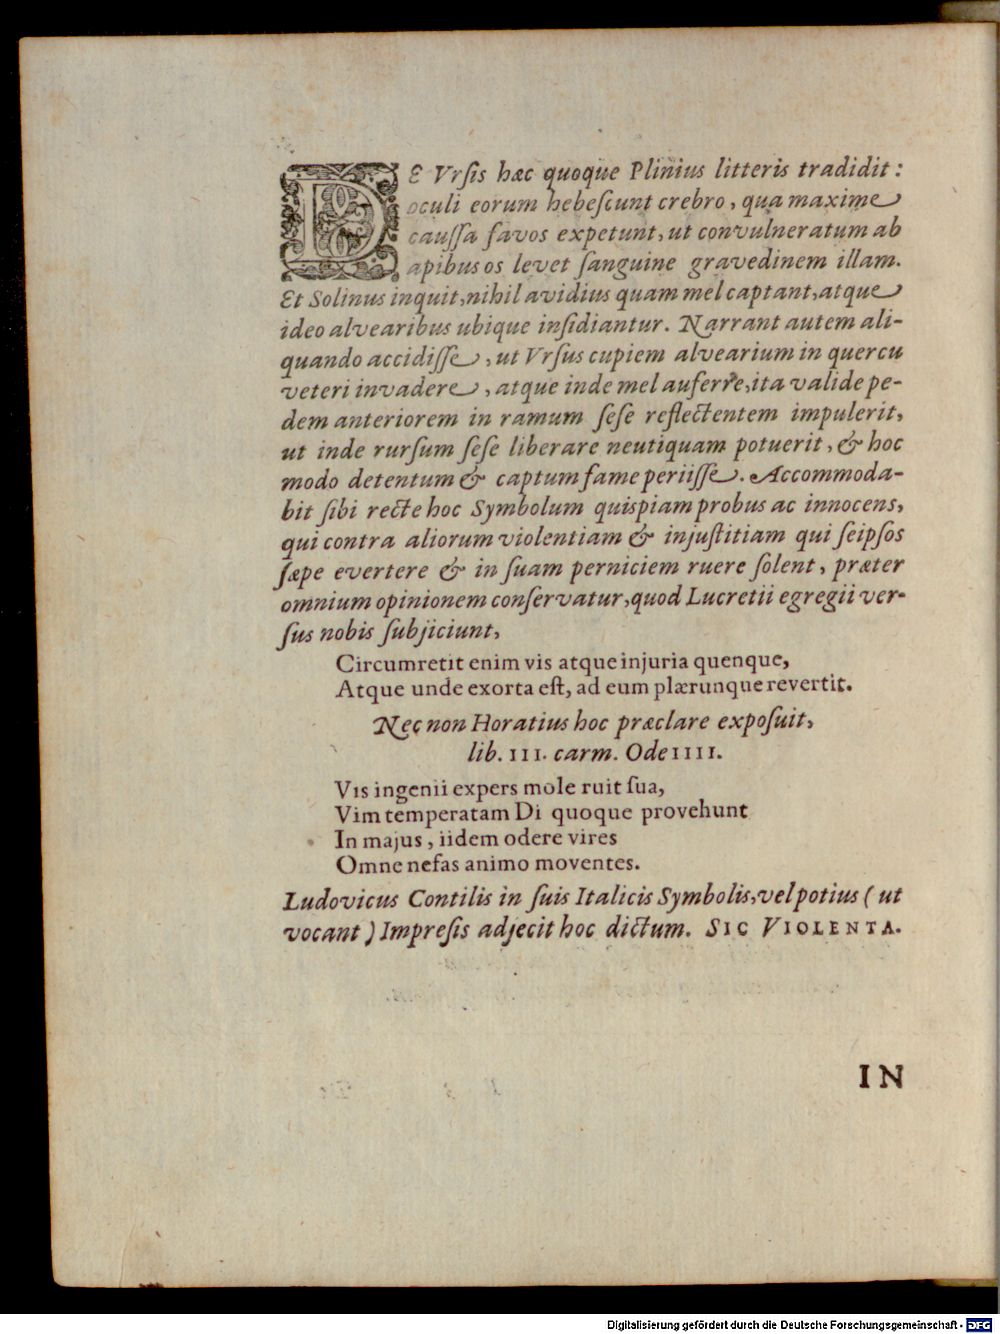 DE Vrſis hæc quoque Plinius litteris tradidit:
oculi eorum hebeſcunt crebro, qua maxime
cauſſa favos expetunt, ut convulneratum ab
apibus os levet ſanguine gravedinem illam.
Et Solinus inquit, nihil avidius quam mel captant, atque
ideo alvearibus ubique inſidiantur. Narrant autem ali-
quando accidiſſe, ut Vrſus cupiem alvearium in quercu
veteri invadere, atque inde mel auferre, ita valide pe-
dem anteriorem in ramum ſeſe reflectentem impulerit,
ut inde rurſum ſeſe liberare neutiquam potuerit, & hoc
modo detentum & captum fame periiſſe. Accommoda-
bit ſibi recte hoc Symbolum quispiam probus ac innocens,
qui contra aliorum violentiam & injuſtitiam qui ſeipſos
ſæpe evertere & in ſuam perniciem ruere ſolent, præter
omnium opinionem conſervatur, quod Lucretii egregii ver-
ſus nobis ſubjiciunt,
Circumretit enim vis atque injuria quenque,
Atque unde exorta eſt, ad eum plærunque revertit.
Nec non Horatius hoc præclare expoſuit,
lib. III. carm. Ode IIII.
Vis ingenii expers mole ruit ſua,
Vim temperatam Di quoque provehunt
In majus, iidem odere vires
Omne nefas animo moventes.
Ludovicus Contilis in ſuis Italicis Symbolis, vel potius (ut
vocant) Impreſis adjecit hoc dictum. SIC VIOLENTA.
IN
Digitalisierung gefördert durch die Deutsche Forschungsgemeinschaft - DFG